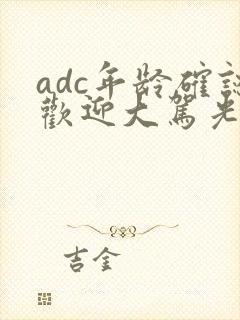 adc年齡確認
歡迎大駕光
吉金